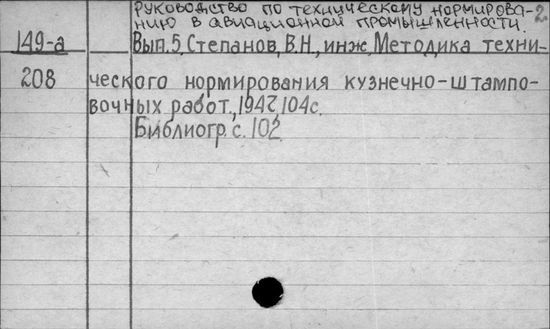 Руководство по техническому нормирова- 2
нию в авиационной промышленности.
149-а Вып.5, Степанов, В.Н., инж. Методика техни-
208 ческого нормирования кузнечно-штампо-
вочных работ, 1942 104с.
Библиогр. с. 102